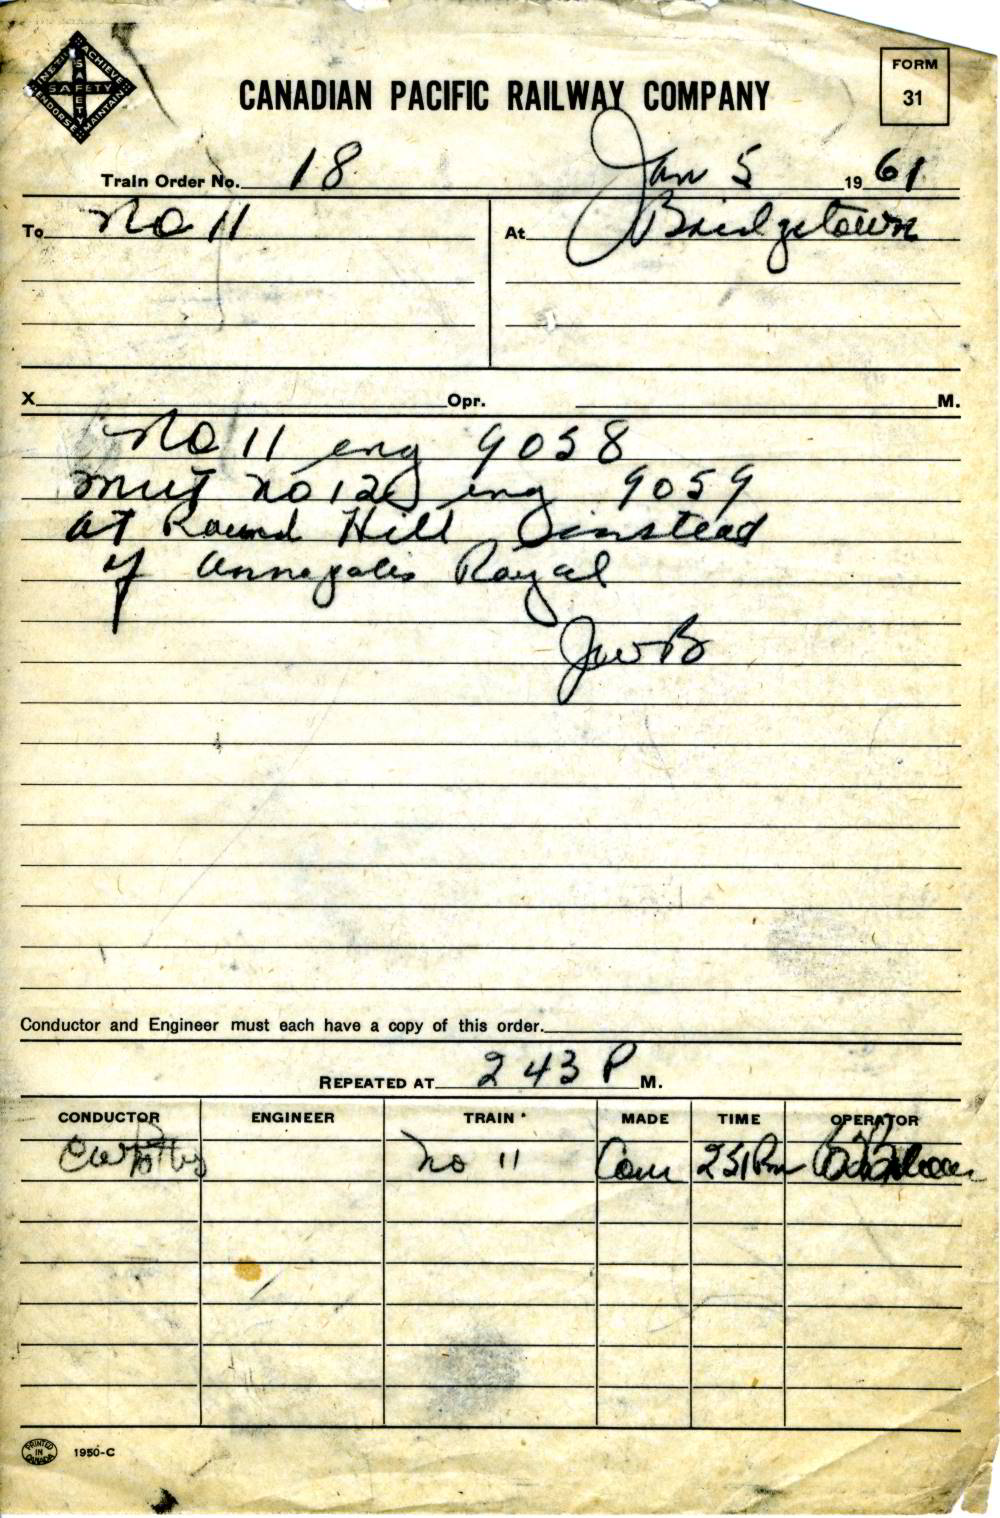 INSTIL ACHIEVE
SAFETY
SAFETY
ENDORSE MAINTAIN
CANADIAN PACIFIC RAILWAY COMPANY
FORM
31
Train Order No. 18 Jan 5 1961
To No 11 At Bridgetown
X Opr. M.
No 11 eng 9058
meet no 12 eng 9059
at Round Hill instead
of Annapolis Royal
JWB
Conductor and Engineer must each have a copy of this order.
REPEATED AT 2 43 P M.
CONDUCTOR ENGINEER TRAIN MADE TIME OPERATOR
No 11 Com 2 51 Pm
PRINTED
IN
CANADA
1950-C